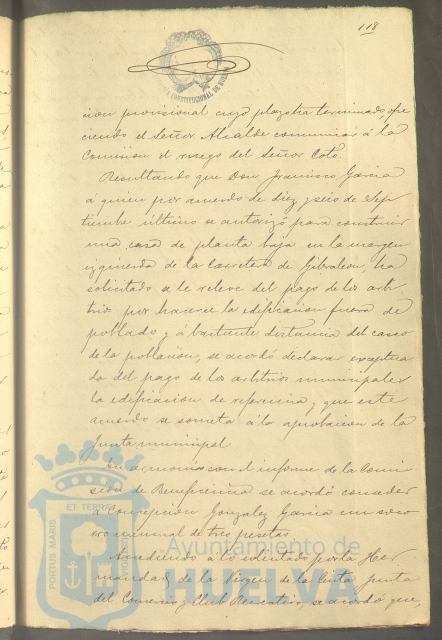 118
cion provisional cuyo plazo ha terminado, ofre
ciendo el Señor Alcalde comunicar á la
Comision el ruego del Señor Coto.
Resultando que Don Francisco Garcia
á quien por acuerdo de diez y seis de Sep
tiembre último se autorizó para construir
una casa de planta baja en la margen
izquierda de la Carretera de Gibraleon, ha
solicitado se le releve del pago de los arbi
trios por hacerse la edificacion fuera de
poblado y á bastante distancia del casco
de la poblacion, se acordó declarar exceptua
da del pago de los arbitrios municipales
la edificacion de referencia, y que este
acuerdo se someta á la aprobacion de la
Junta municipal.
En armonia con el informe de la Comi
sion de Beneficencia se acordó conceder
á Concepcion Gonzalez Garcia un soco
rro mensual de tres pesetas.
Accediendo á lo solicitado por la Her
mandad de la Virgen de la Cinta, Junta
del Comercio y Club Recreativo, se acordó que,
PORTUS MARIS
ET TERRÆ
CUSTODIA
Ayuntamiento de
HUELVA
CONSTITUCIONAL DE HUELVA